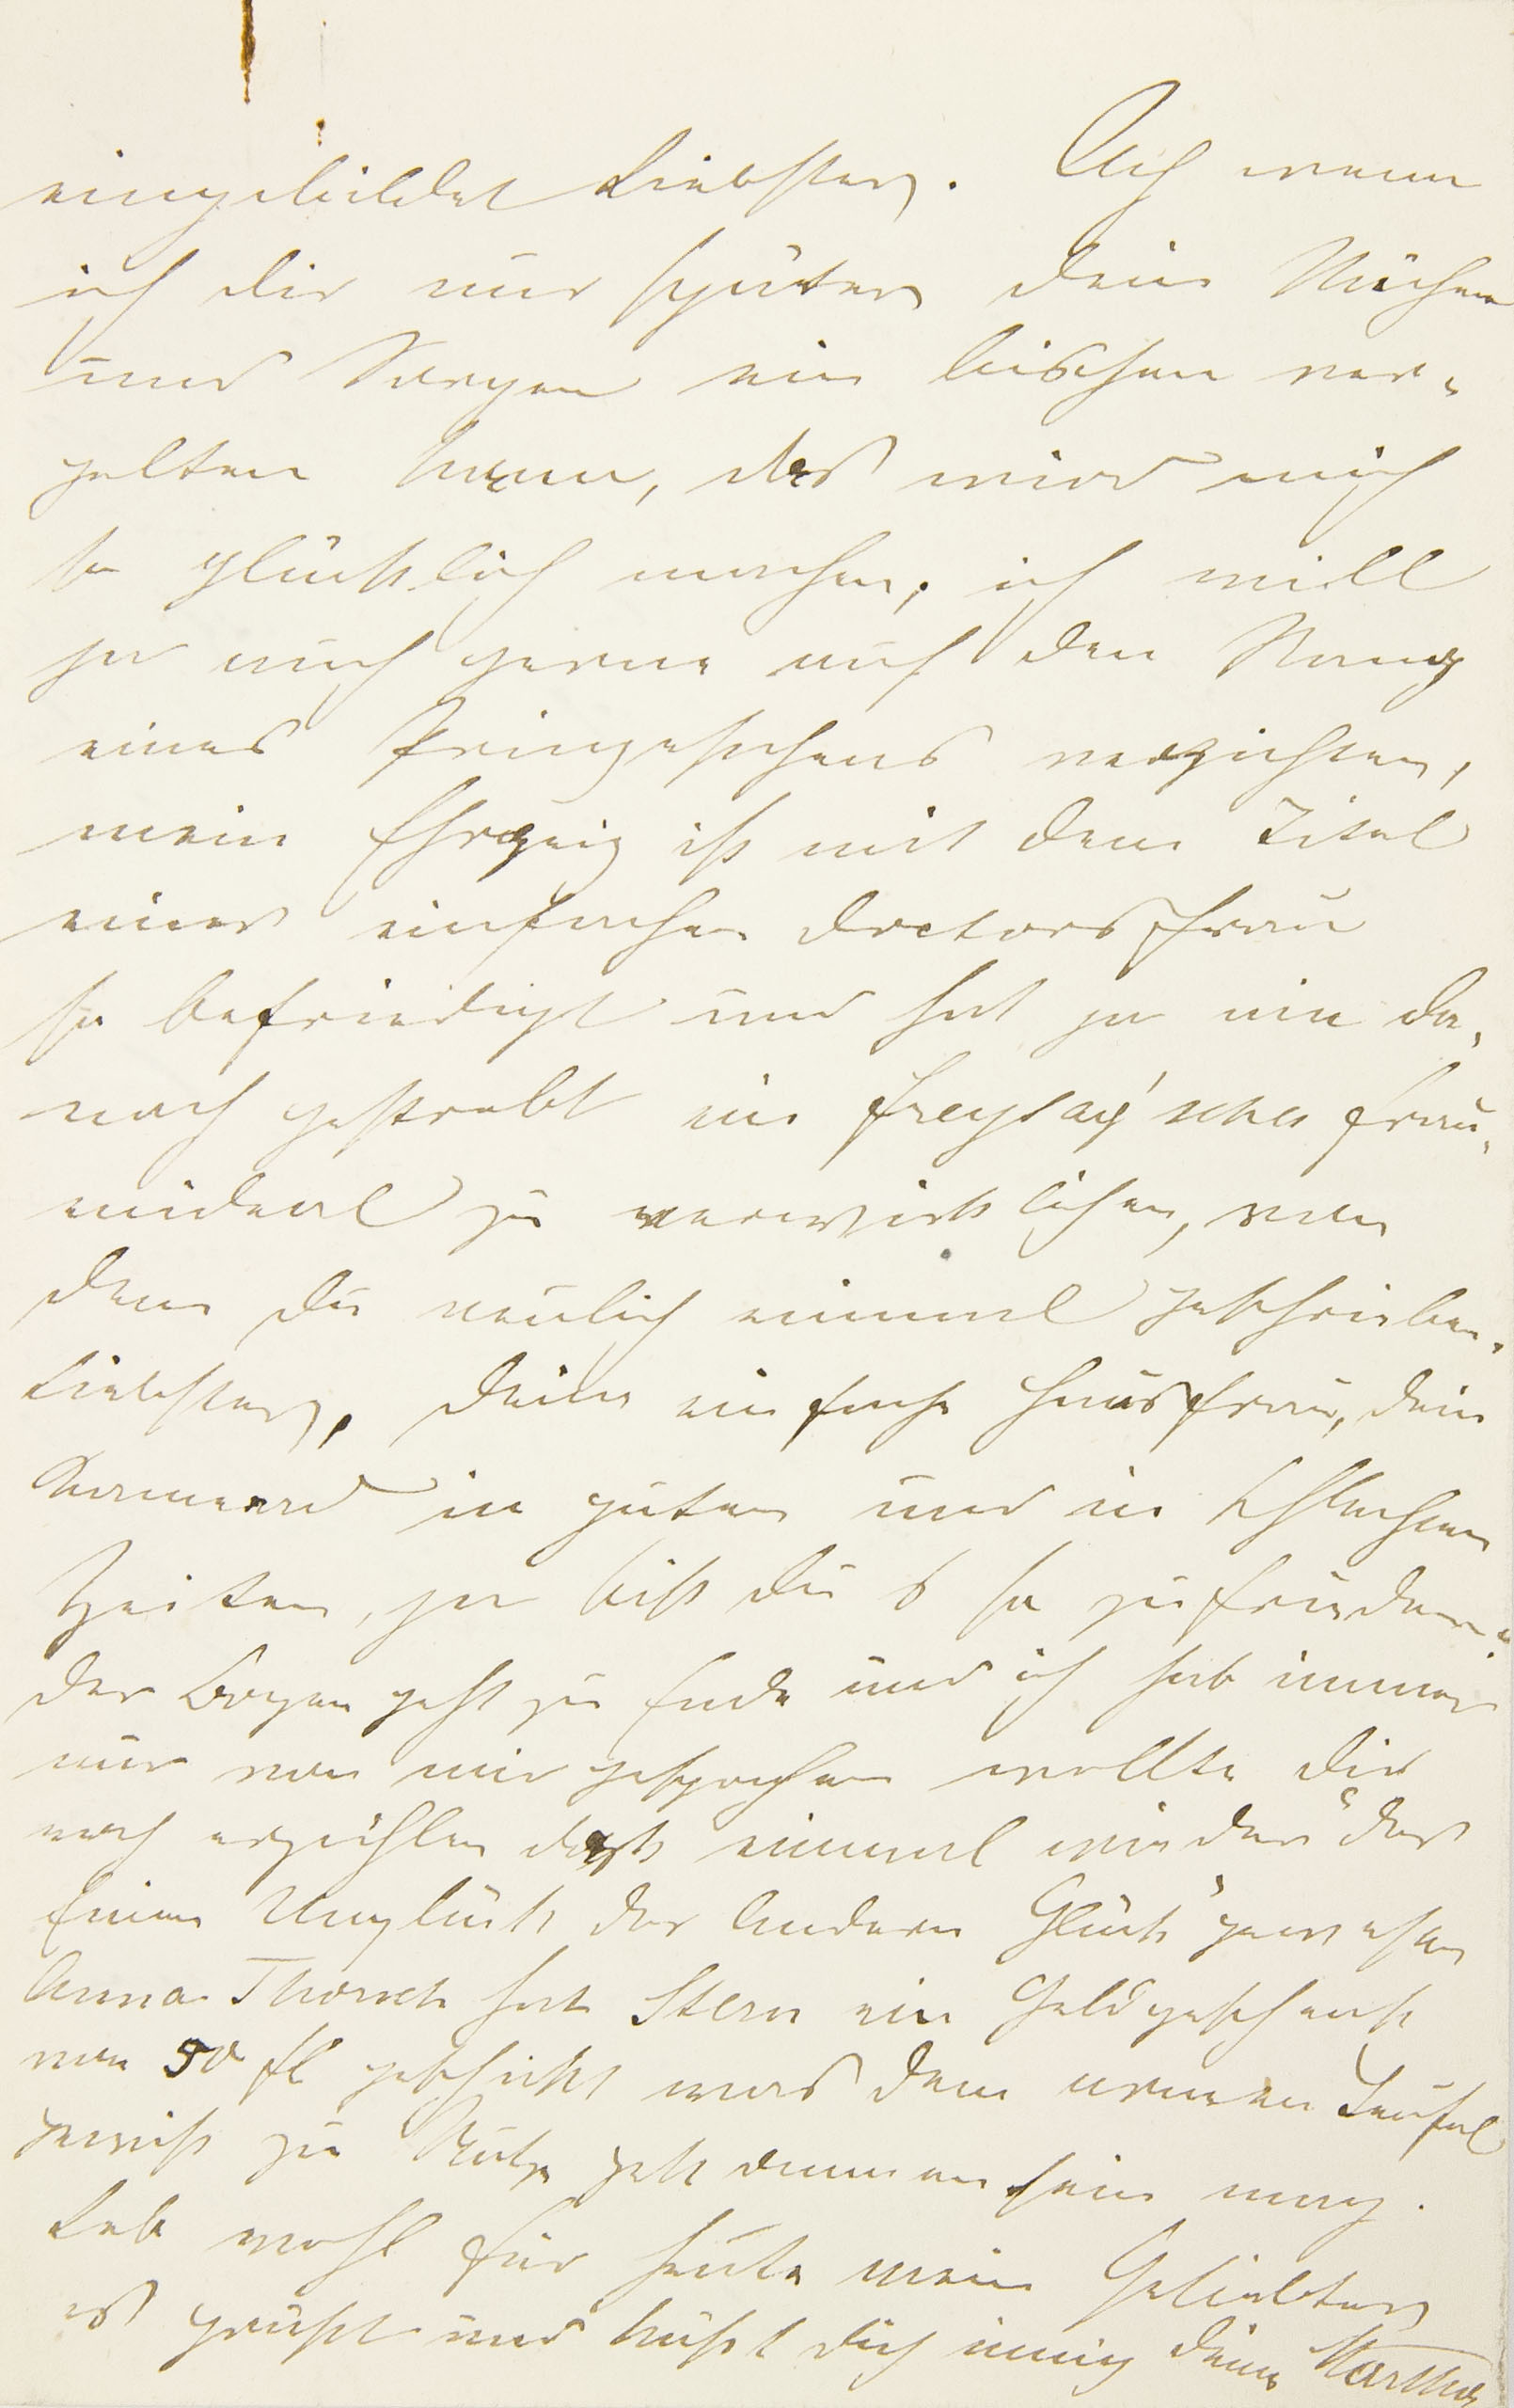 eingebildet Liebster. Ach wenn
ich dir nur später dein Mühen
und Sorgen ein bischen ver-
gelten kann, das wird mich
so glücklich machen, ich will
ja auch gerne auf den Rang
eines Prinzesschens verzichten,
mein Ehrgeiz ist mit dem Titel
einer einfachen Doctorsfrau
so befriedigt und hat ja nie da-
nach gestrebt ein Freytag'sches Frau-
enideal zu verwirklichen, von
dem du neulich einmal geschrieben.
Liebster, deine einfache Hausfrau, dein
Kamerad in guten und in schlechten
Zeiten, ja bist du's so zufrieden?
Der Bogen geht zu Ende und ich hab immer
nur von mir gesprochen wollte dir
noch erzählen daß einmal wieder „des
Einen Unglück des Andern Glück" gewesen
Anna Thorsch hat Stern ein Geldgeschenk
von 50 fl geschickt was dem armen Teufel
gewiß zu Nutze gekommen sein mag.
Leb wohl für heute mein Geliebter
es grüßt und küßt dich innig deine Martha